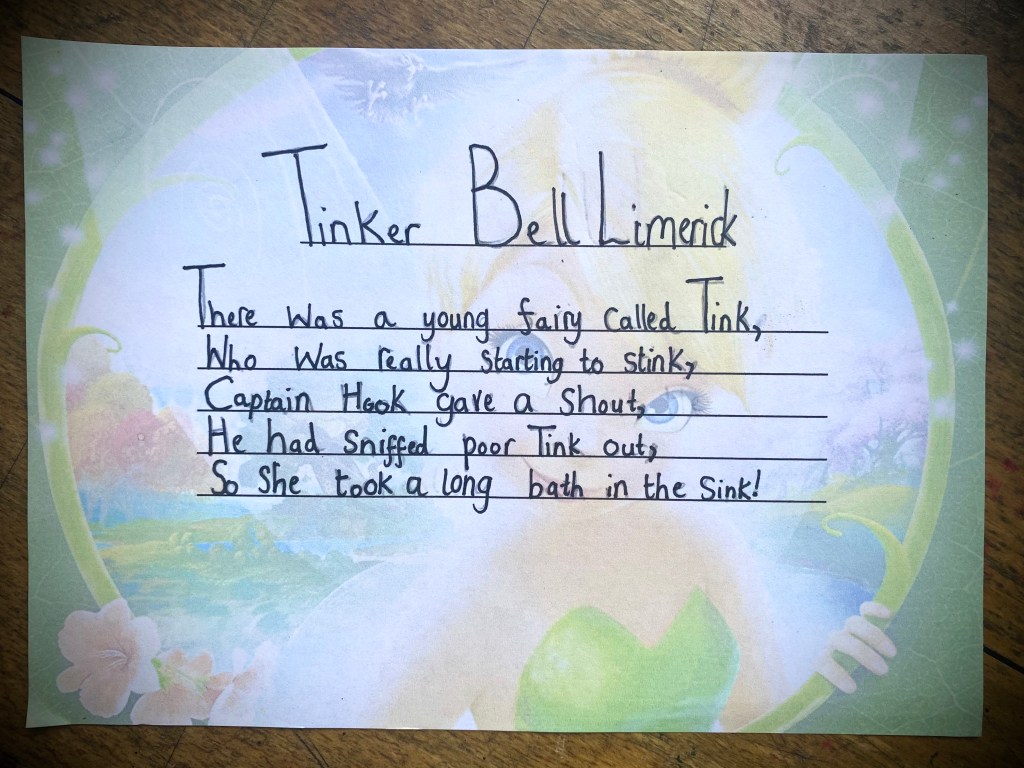 Tinker Bell Limerick
There was a young fairy called Tink,
Who was really starting to stink,
Captain Hook gave a shout,
He had sniffed poor Tink out,
So she took a long bath in the sink!